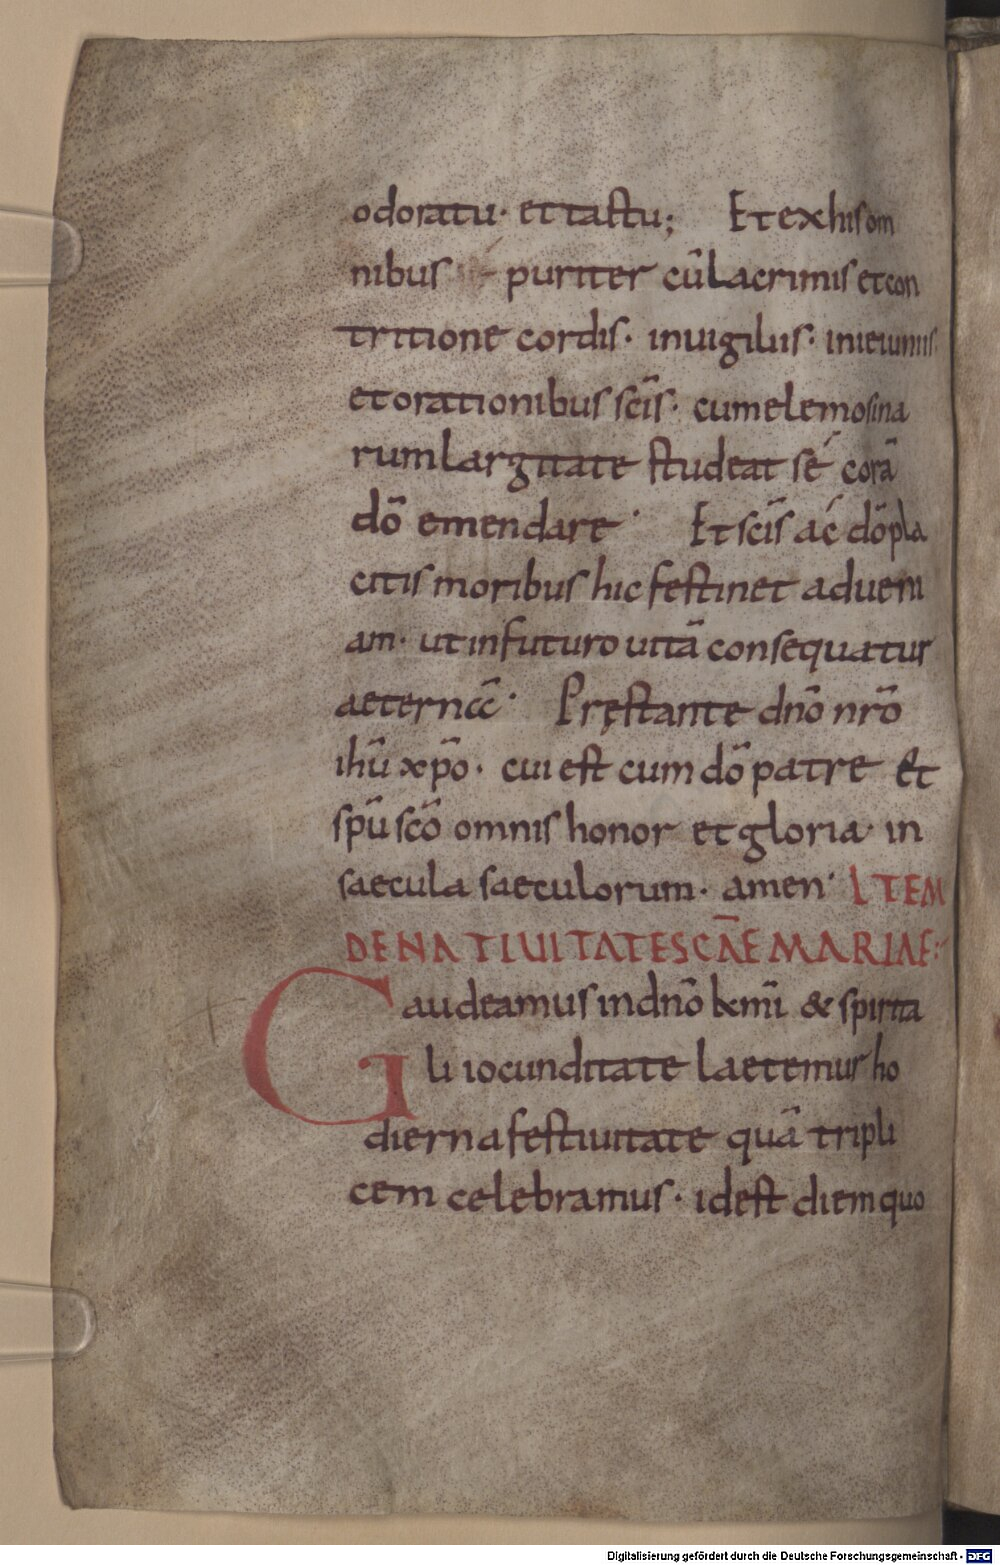 odoratu· et tactu; Et ex his om
nibus puriter cū lacrimis et con
tritione cordis· in uigiliis· in ieiuniis
et orationibus scīs· cum elemosina
rum largitate studeat sé corā
dō emendare· Et scīs ac dō pla
citis moribus hic festinet ad ueni
am· ut in futuro uitā consequatur
aeternā· Pręstante dnō nrō
ihū xpō· cui est cum dō patre et
spū scō omnis honor et gloria· in
saecula saeculorum· amen· ITEM
DE NATIUITATE SCĀE MARIAE:
Gaudeamus in dnō kmī & spirita
li iocunditate laetemur ho
dierna festiuitate quā tripli
cem celebramus· id est diem quo
Digitalisierung gefördert durch die Deutsche Forschungsgemeinschaft - DFG